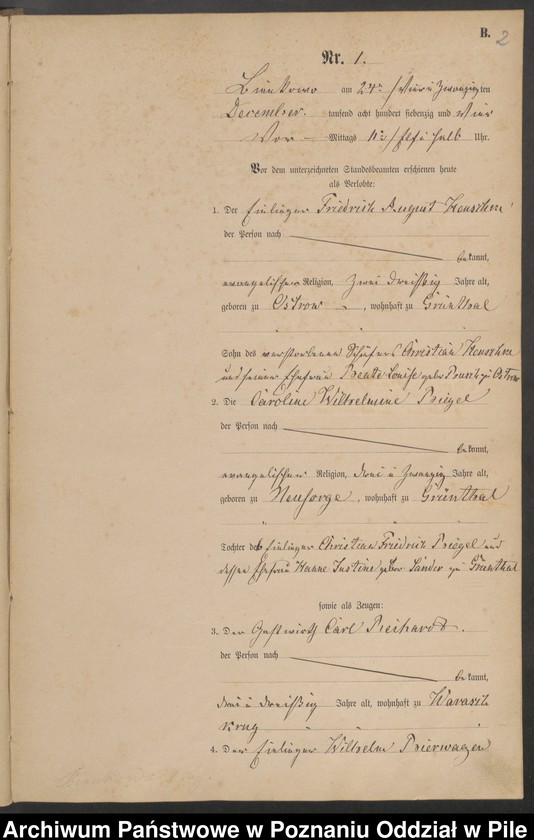 B. 2
Nr. 1.
am 24ten /Vier u Zwanzigsten
December. tausend acht hundert siebenzig und Vier
Vor – Mittags 11½/Elf u halb Uhr.
Vor dem unterzeichneten Standesbeamten erschienen heute
als Verlobte:
1. Der Einlieger Friedrich August
der Person nach
bekannt,
evangelischer Religion, Zwei Dreißig Jahre alt,
geboren zu Ostrow, wohnhaft zu Grünthal
Sohn des verstorbenen Schäfers Christian
und seiner Ehefrau Beate Louise zu Ostrow
2. Die Caroline Wilhelmine Priegel
der Person nach
bekannt,
evangelischer Religion, drei u Zwanzig Jahre alt,
geboren zu Neusorge, wohnhaft zu Grünthal
Tochter des Einlieger Christian Friedrich Priegel und
dessen Ehefrau Hanne Justine gebor Sander zu Grünthal
sowie als Zeugen:
3. Der Gastwirth Carl Reichardt.
der Person nach
bekannt,
drei u dreißig Jahre alt, wohnhaft zu
Krug
4. Der Einlieger Wilhelm Bierwagen
Archiwum Państwowe w Poznaniu Oddział w Pile